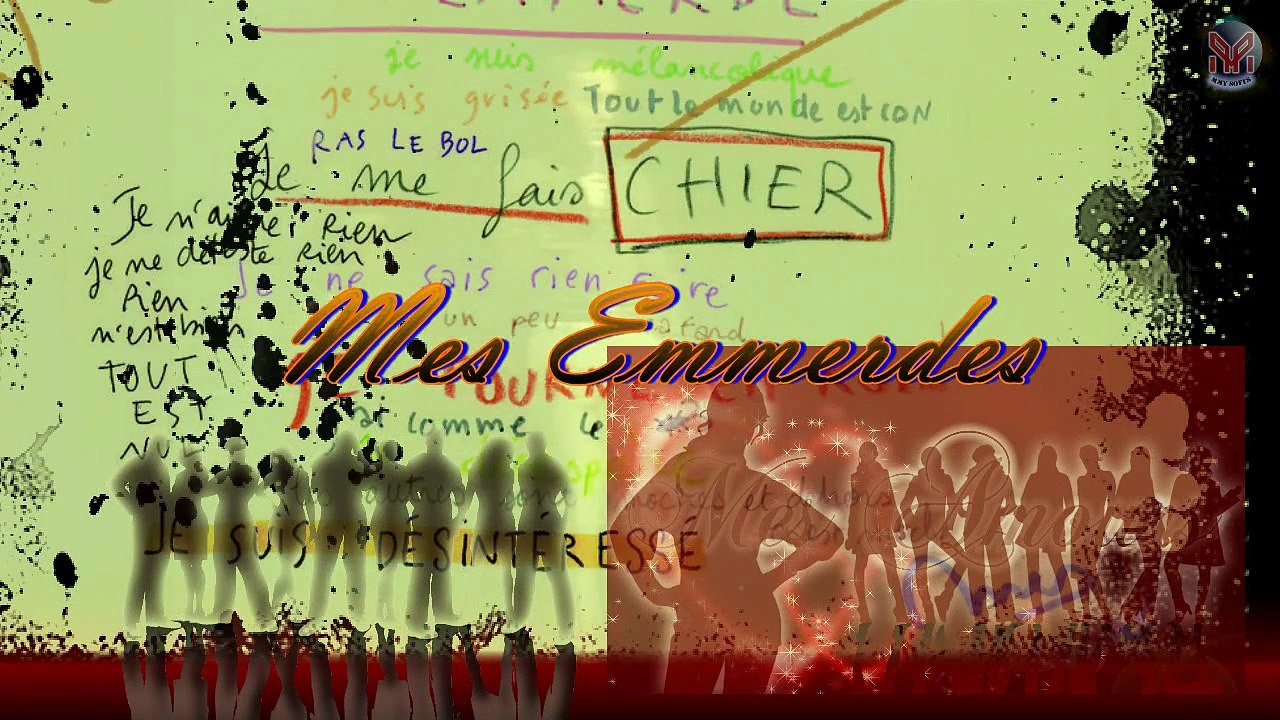 EMMERDE
MMY SOFTS
je suis mélancolique
je suis grisée Tout le monde est con
RAS LE BOL
Je me fais CHIER
Je n'aime rien
je ne déteste rien
Rien
n'est bien
TOUT
EST
NUL
Je ne sais rien faire
un peu
Mes Emmerdes
JE TOURNE EN ROND
comme le
autres
et dehors
Mes Amours
JE SUIS DÉSINTÉRESSÉ